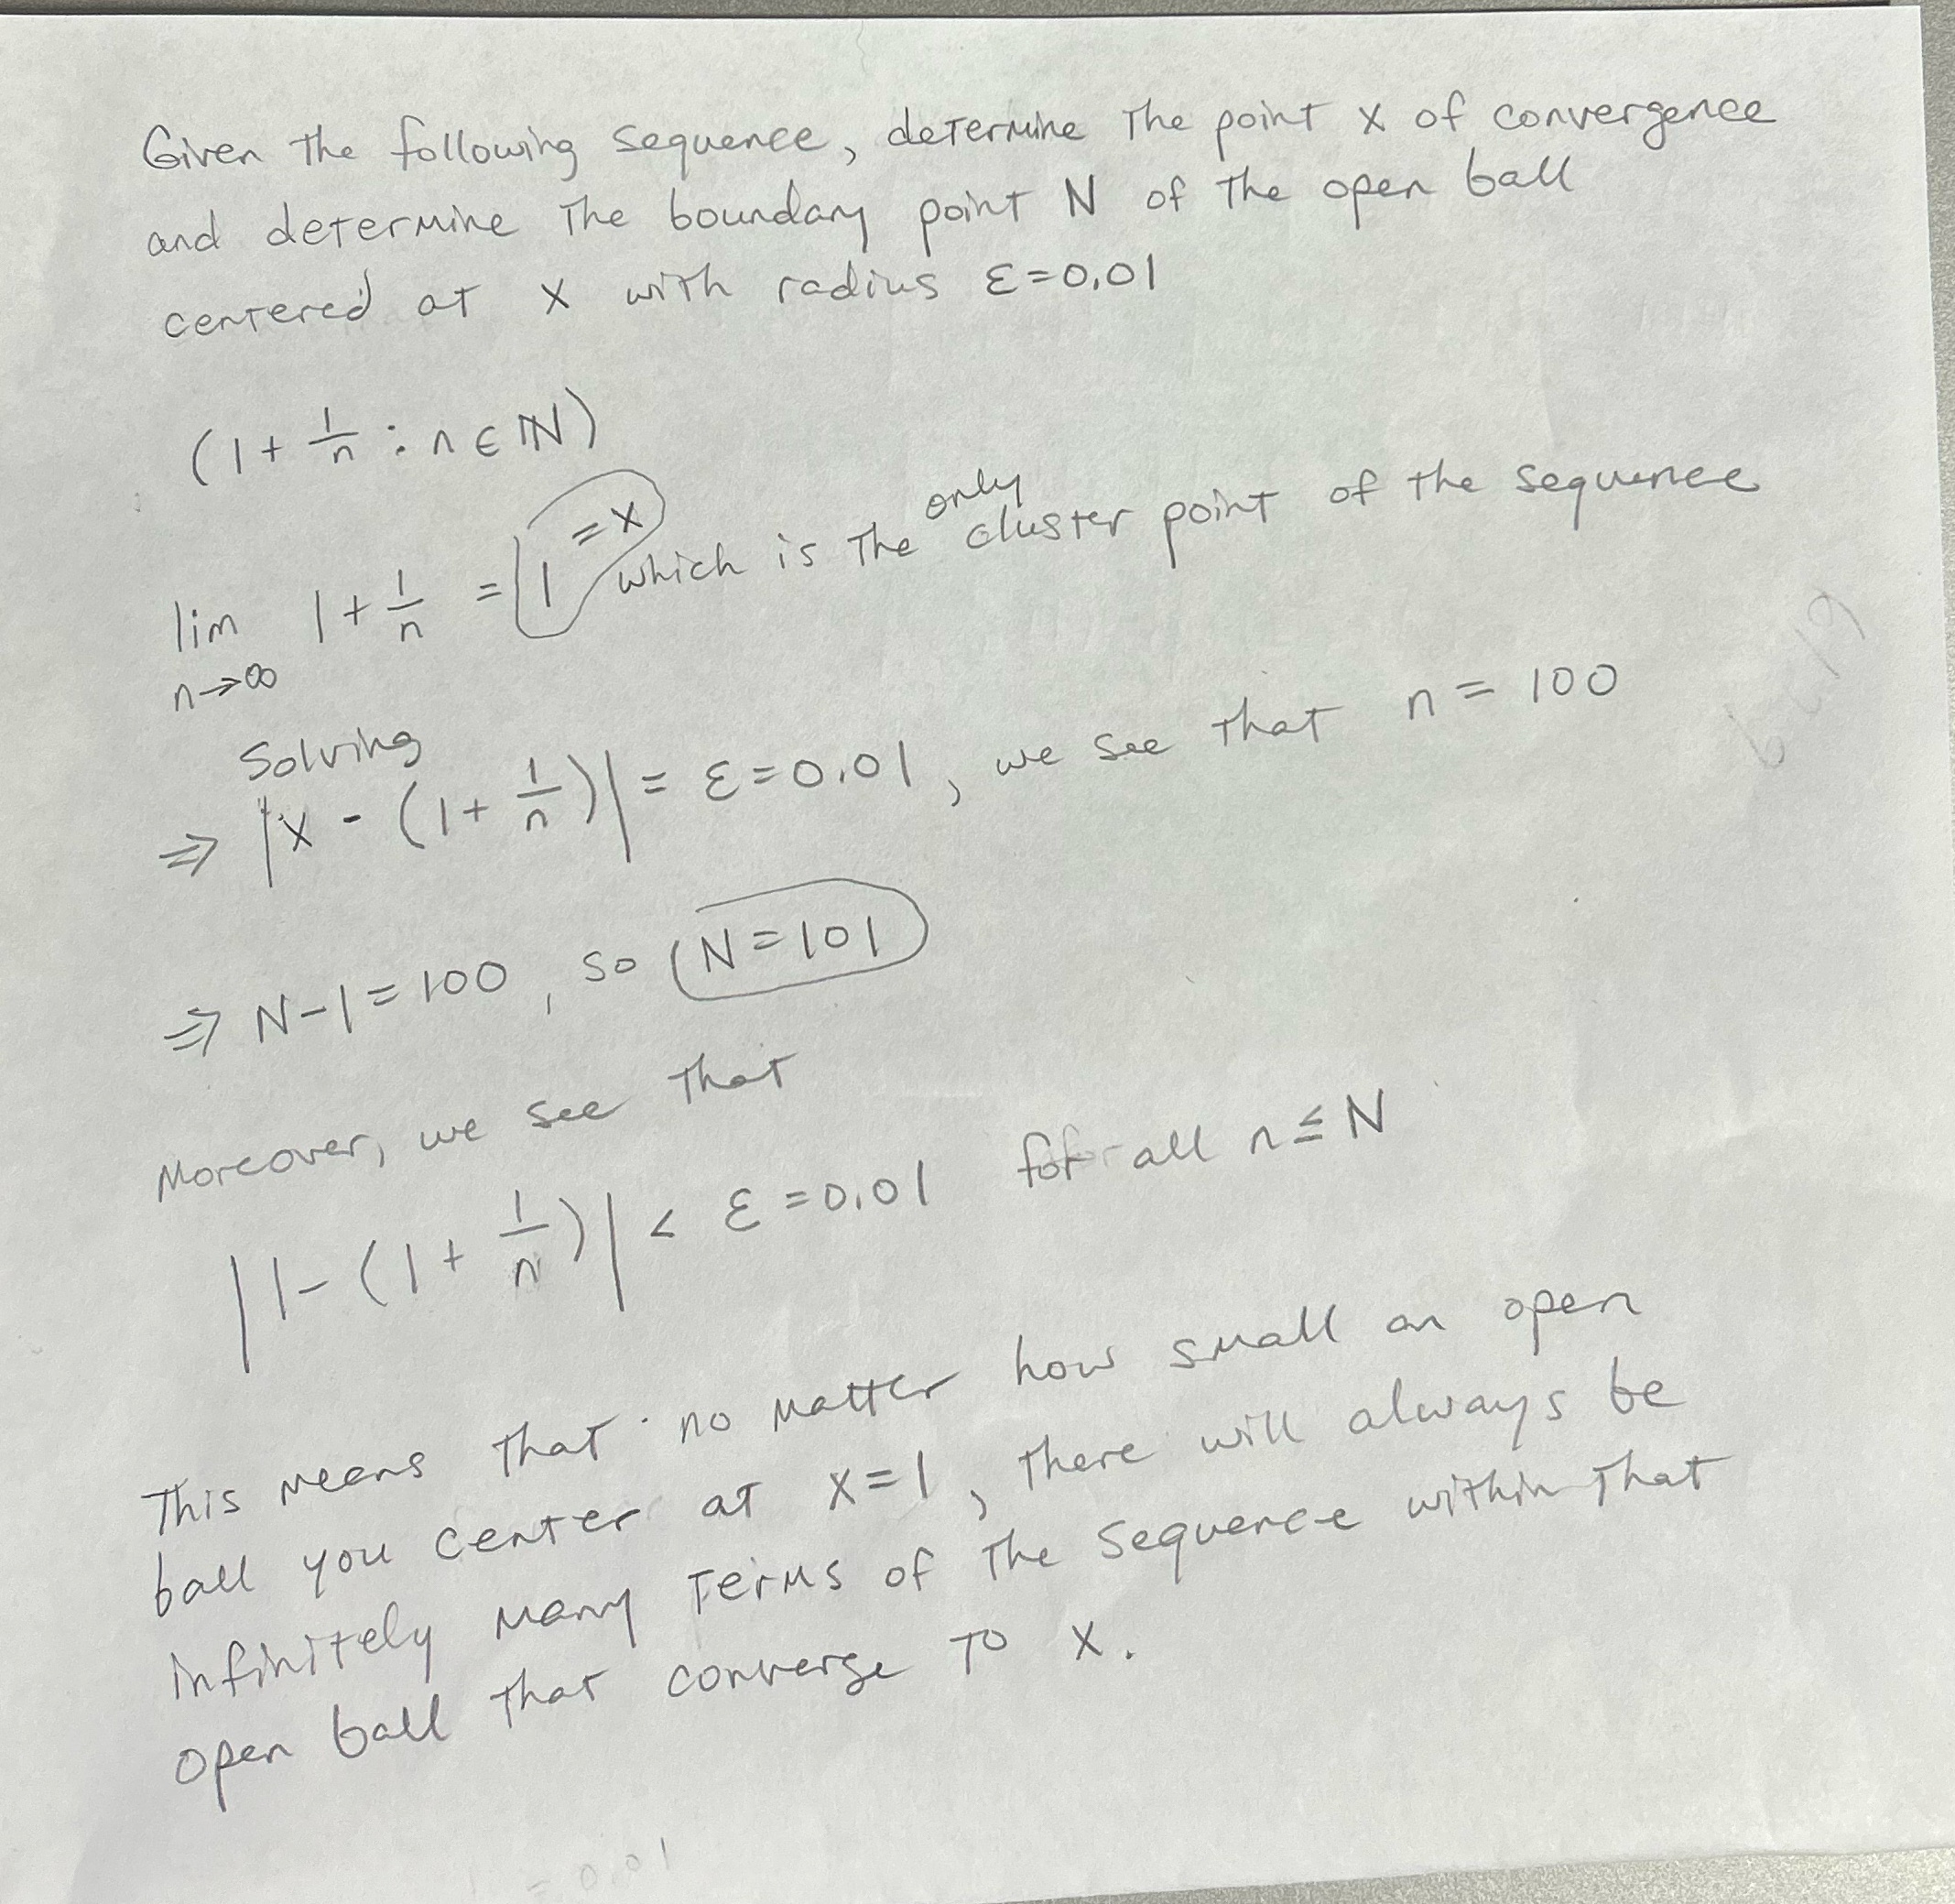 Given the following sequence, determine the point x of convergence
and determine the boundary point N of the open ball
centered at x with radius ε=0.01
(1 + 1/n : n ∈ ℕ)
lim n→∞ 1 + 1/n = 1 = x which is the only cluster point of the sequence
Solving
⇒ |x - (1 + 1/n)| = ε = 0.01, we see that n = 100
⇒ N-1 = 100, so N = 101
Moreover, we see that
|1 - (1 + 1/n)| < ε = 0.01 for all n ≤ N
This means that no matter how small an open
ball you center at x=1, there will always be
infinitely many terms of the sequence within that
open ball that converge to x.
= 0.01